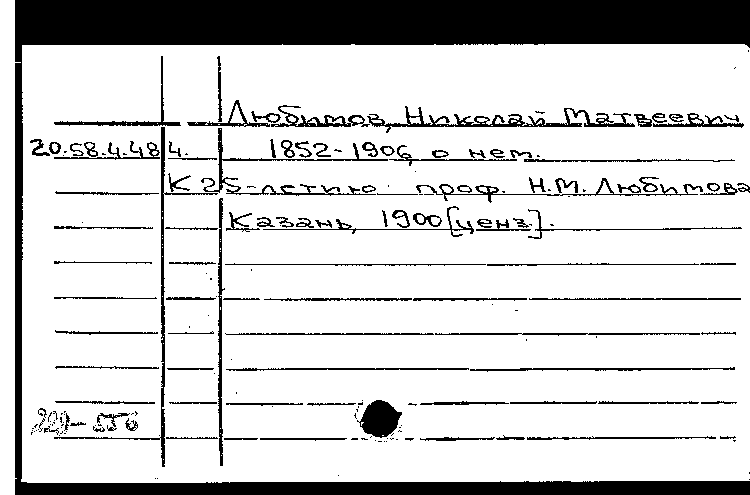 Любимов, Николай Матвеевич
20.58.4.484. 1852-1906, о нем.
К 25-летию проф. Н.М. Любимова
Казань, 1900 [ценз.].
229-556